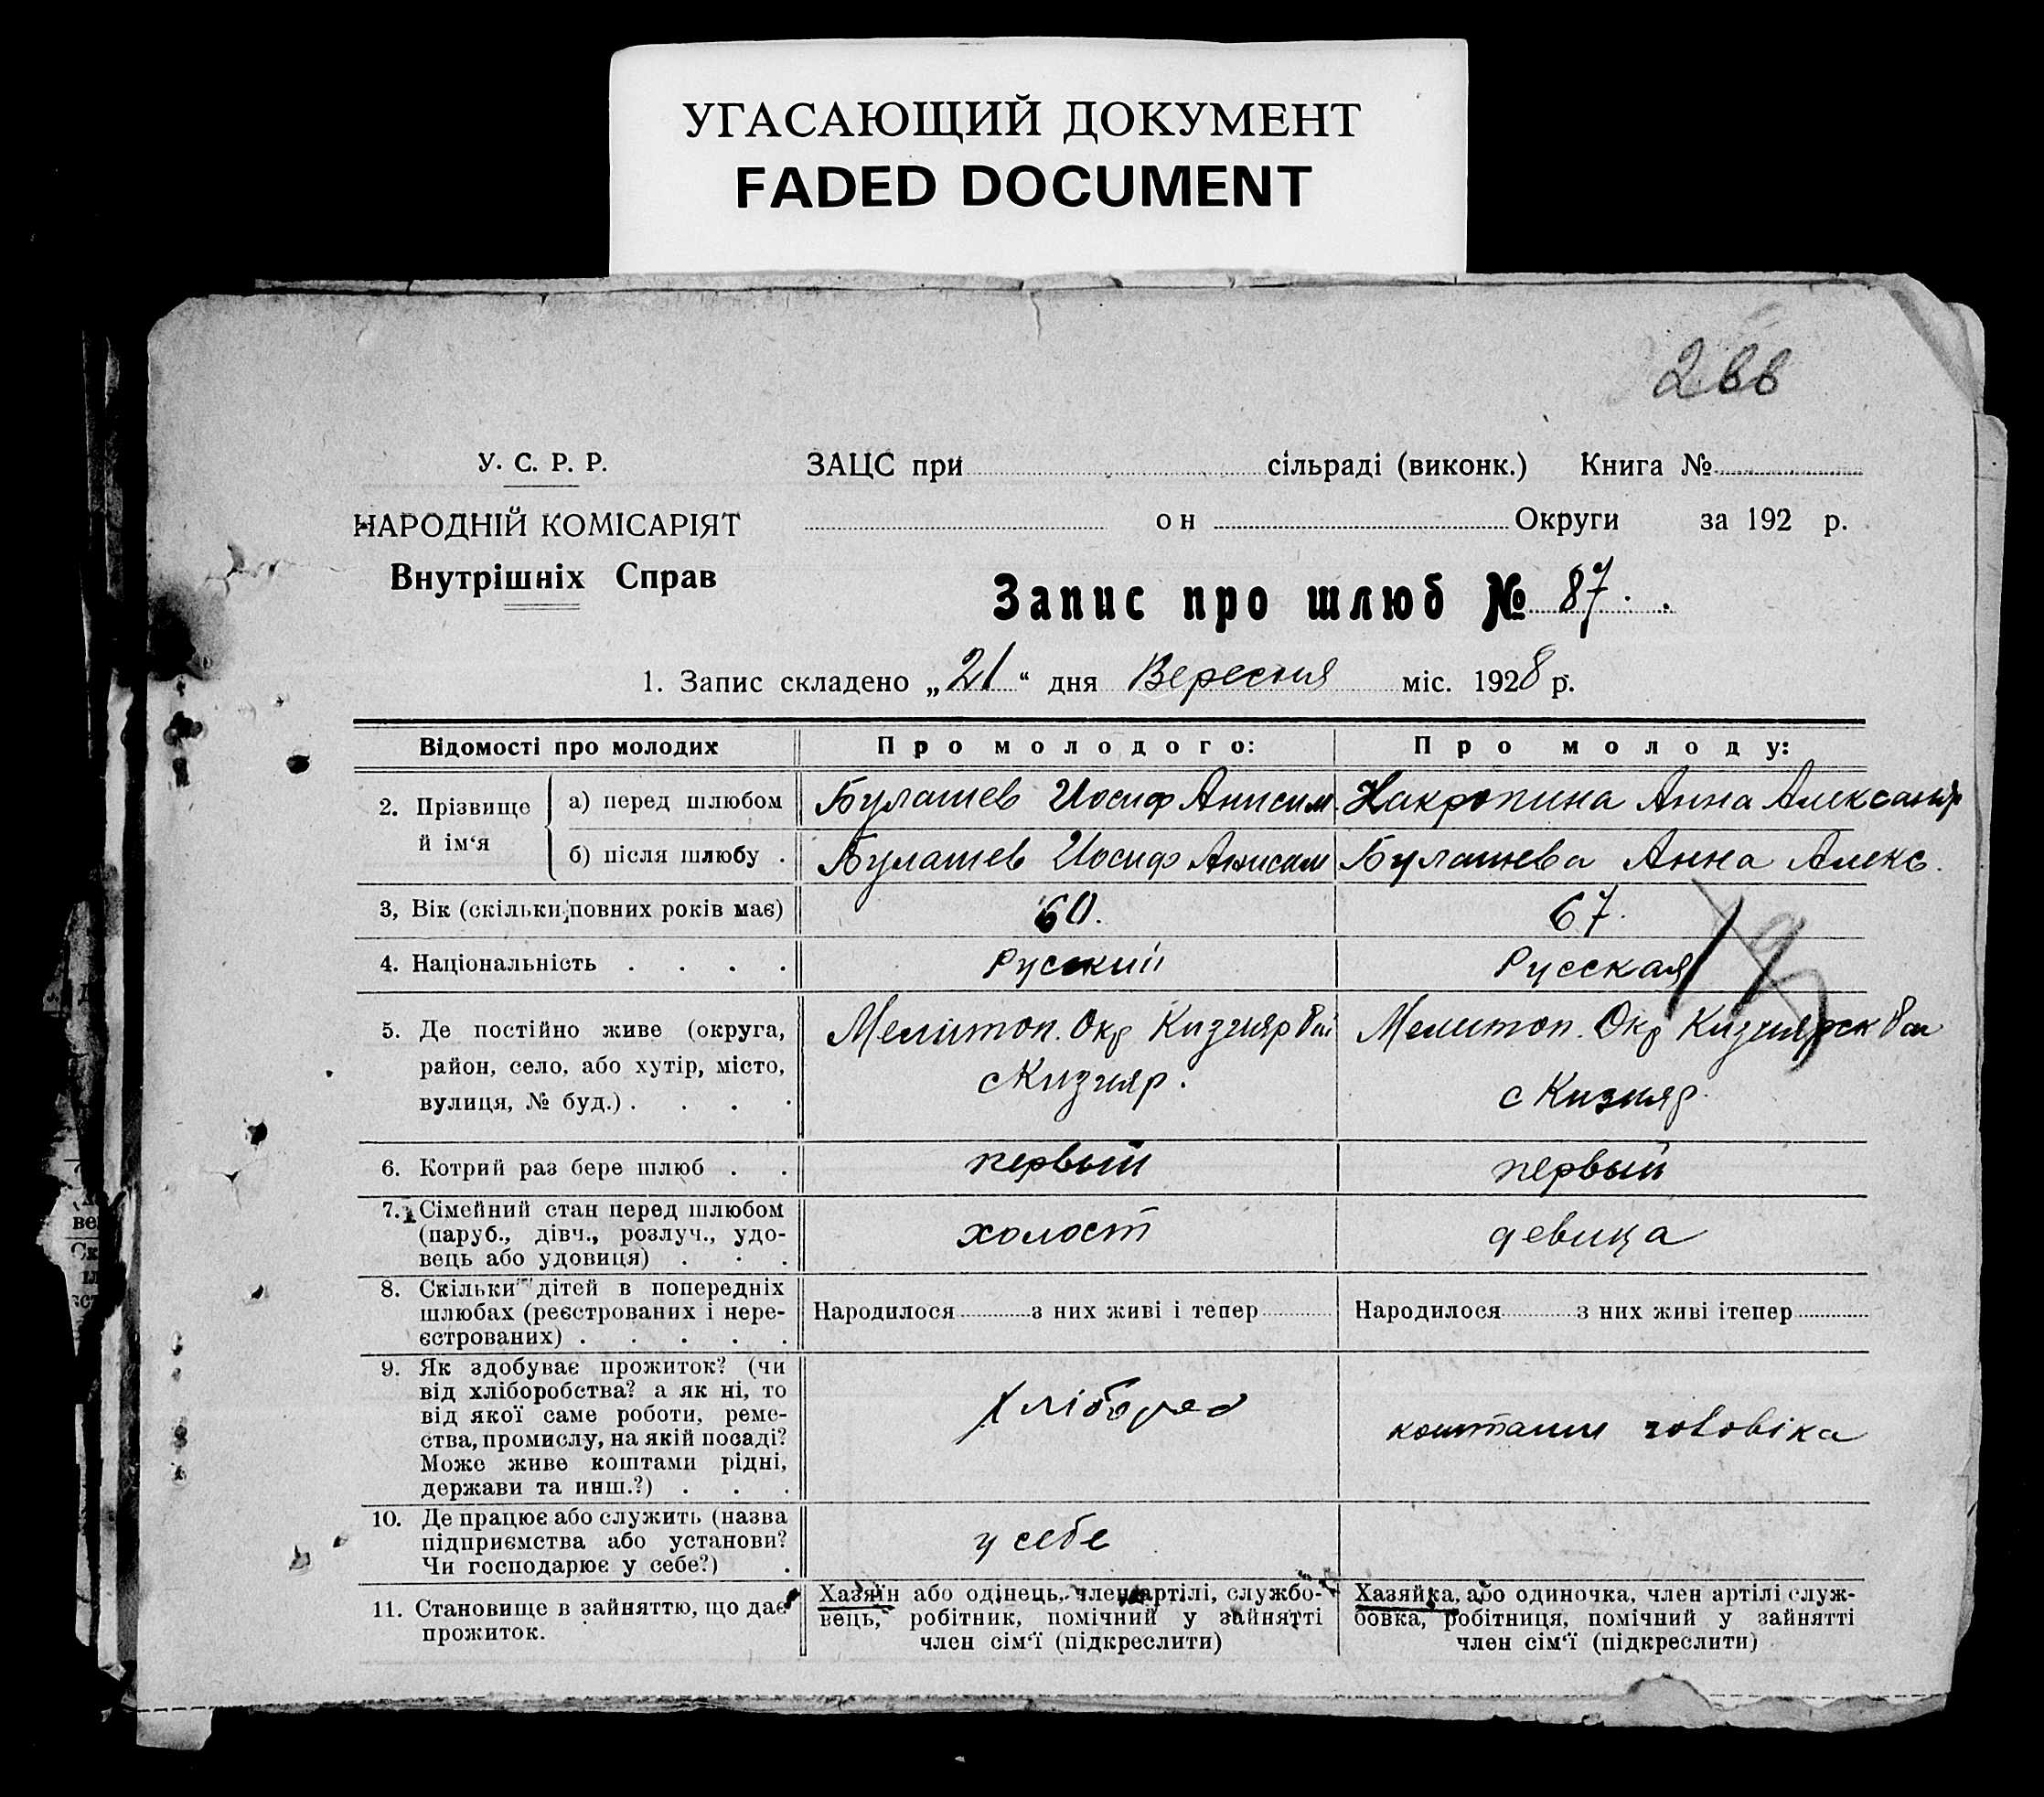 УГАСАЮЩИЙ ДОКУМЕНТ
FADED DOCUMENT
266
У. С. Р. Р.
НАРОДНІЙ КОМІСАРІЯТ
Внутрішніх Справ
ЗАЦС при сільраді (виконк.) Книга №
он Округи за 192 р.
Запис про шлюб № 87.
1. Запис складено „21“ дня Вересня міс. 1928 р.
Відомості про молодих Про молодого: Про молоду:
2. Прізвище й ім‘я
а) перед шлюбом Булашев Иосиф Анисим. Накропина Анна Александр
б) після шлюбу . Булашев Иосиф Анисим Булашева Анна Алекс.
3, Вік (скільки повних років має) 60. 67.
4. Національність . . . . Русский Русская
19
5. Де постійно живе (округа, Мелитоп. Окр Кизияр Мелитоп. Окр Кизиярск
район, село, або хутір, місто, с Кизияр. с Кизияр.
вулиця, № буд.) . . . .
6. Котрий раз бере шлюб . . первый первый
7. Сімейний стан перед шлюбом
(паруб., дівч., розлуч., удо- холост девица
вець або удовиця) . . .
8. Скільки дітей в попередніх
шлюбах (реєстрованих і нере- Народилося з них живі і тепер Народилося з них живі ітепер
єстрованих) . . . . .
9. Як здобуває прожиток? (чи
від хліборобства? а як ні, то
від якої саме роботи, реме- хлібороб
ства, промислу, на якій посаді? коштами чоловіка
Може живе коштами рідні,
держави та инш.?) . . .
10. Де працює або служить (назва
підприємства або установи? у себе
Чи господарює у себе?) .
11. Становище в зайняттю, що дає
прожиток.
Хазяїн або одінець, член артілі, службо-
вець, робітник, помічний у зайнятті
член сім‘ї (підкреслити)
Хазяйка, або одиночка, член артілі служ-
бовка, робітниця, помічний у зайнятті
член сім‘ї (підкреслити)